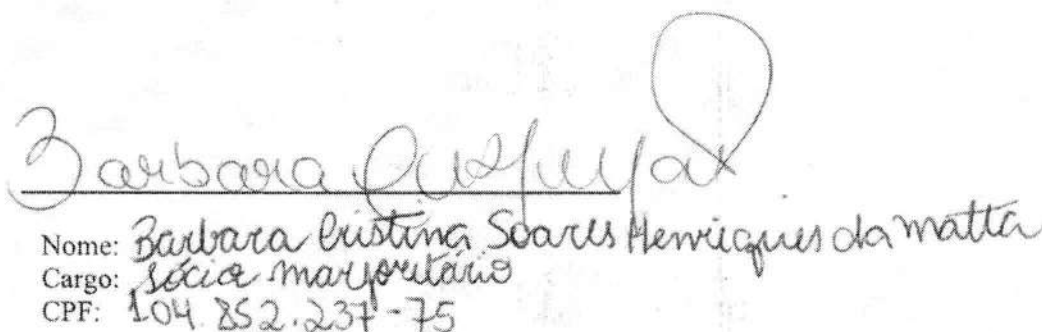 Barbara
Nome: Barbara Cristina Soares Henriques da Matta
Cargo: sócia marjoritário
CPF: 104.852.237-75